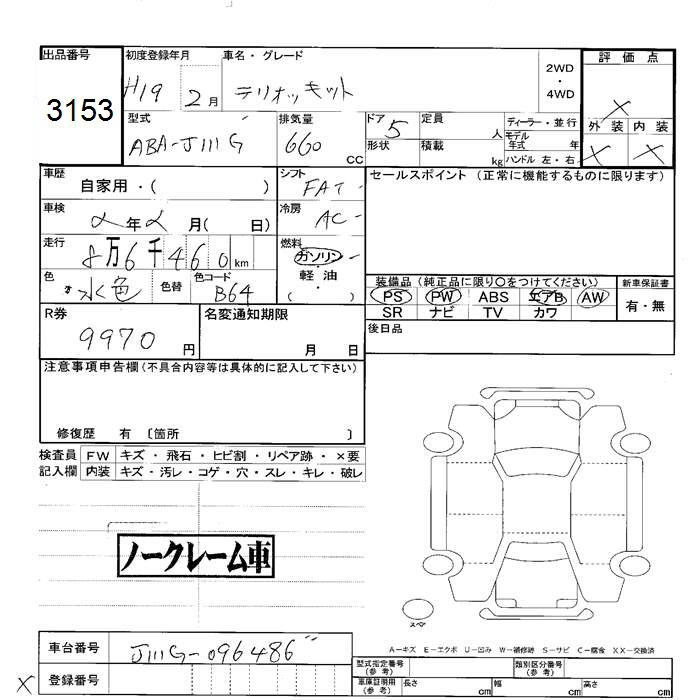 出品番号
3153
初度登録年月
H19 2月
車名・グレード
テリオッキット
2WD
・
4WD
評価点
×
外装 内装
× ×
型式
ABA-J111G
排気量
660 CC
ドア 5
形状
定員 人
積載 kg
ディーラー・並行
モデル年式 年
ハンドル 左・右
車歴
自家用・( )
シフト
FAT
セールスポイント (正常に機能するものに限ります)
車検
年 月( 日)
冷房
AC
走行
8万6千460km
燃料
ガソリン
軽・油
( )
色
水色
色替
色コード
B64
装備品(純正品に限り○をつけてください)
PS PW ABS エアB AW
SR ナビ TV カワ
新車保証書
有・無
R券
9970 円
名変通知期限
月 日
後日品
注意事項申告欄(不具合内容等は具体的に記入して下さい)
修復歴 有 〔箇所 〕
検査員記入欄
FW キズ・飛石・ヒビ割・リペア跡・×要
内装 キズ・汚レ・コゲ・穴・スレ・キレ・破レ
ノークレーム車
スペア
A-キズ E-エクボ U-凹み W-補修跡 S-サビ C-腐食 XX-交換済
車台番号
J111G-096486
× 登録番号
型式指定番号(参考)
類別区分番号(参考)
車庫証明用(参考)
長さ cm
幅 cm
高さ cm